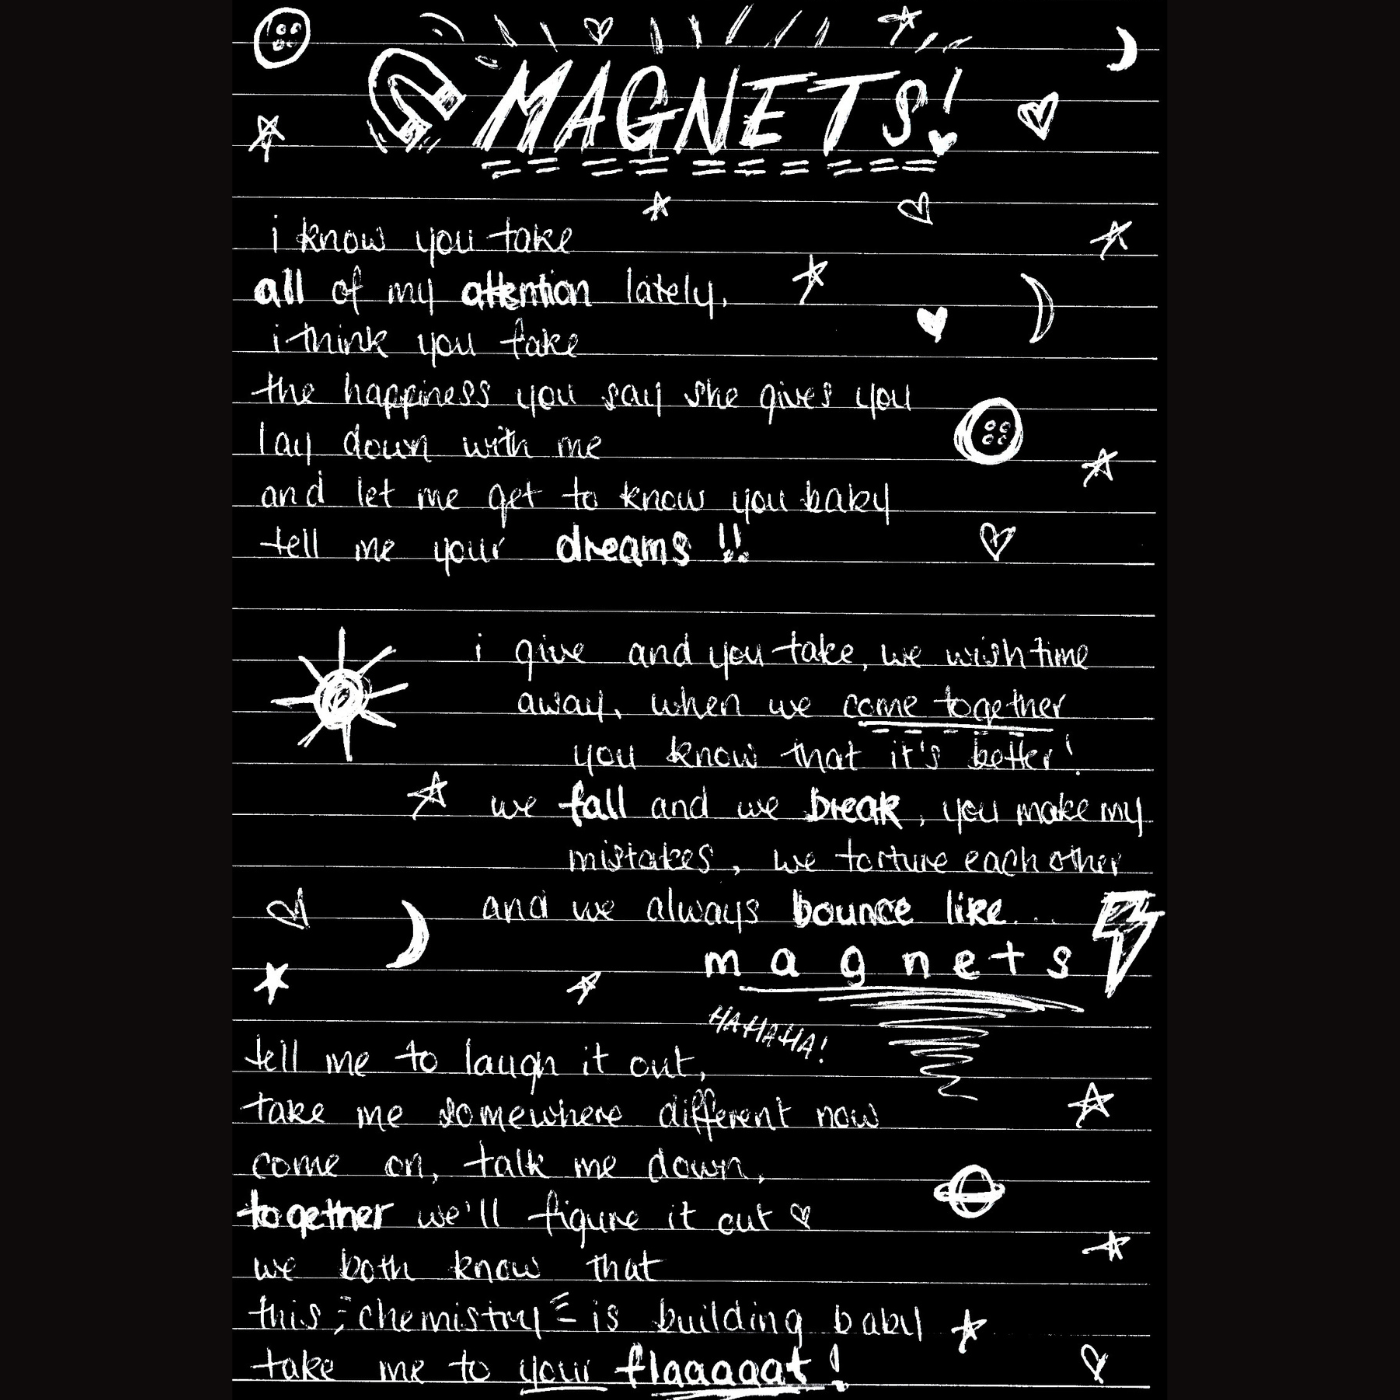 MAGNETS!
i know you take
all of my attention lately,
i think you fake
the happiness you say she gives you
lay down with me
and let me get to know you baby
tell me your dreams !!
i give and you take, we wish time
away, when we come together
you know that it's better!
we fall and we break, you make my
mistakes, we torture each other
and we always bounce like...
magnets
HA HA HA!
tell me to laugh it out,
take me somewhere different now
come on, talk me down,
together we'll figure it out
we both know that
this chemistry is building baby
take me to your flaaaaat!